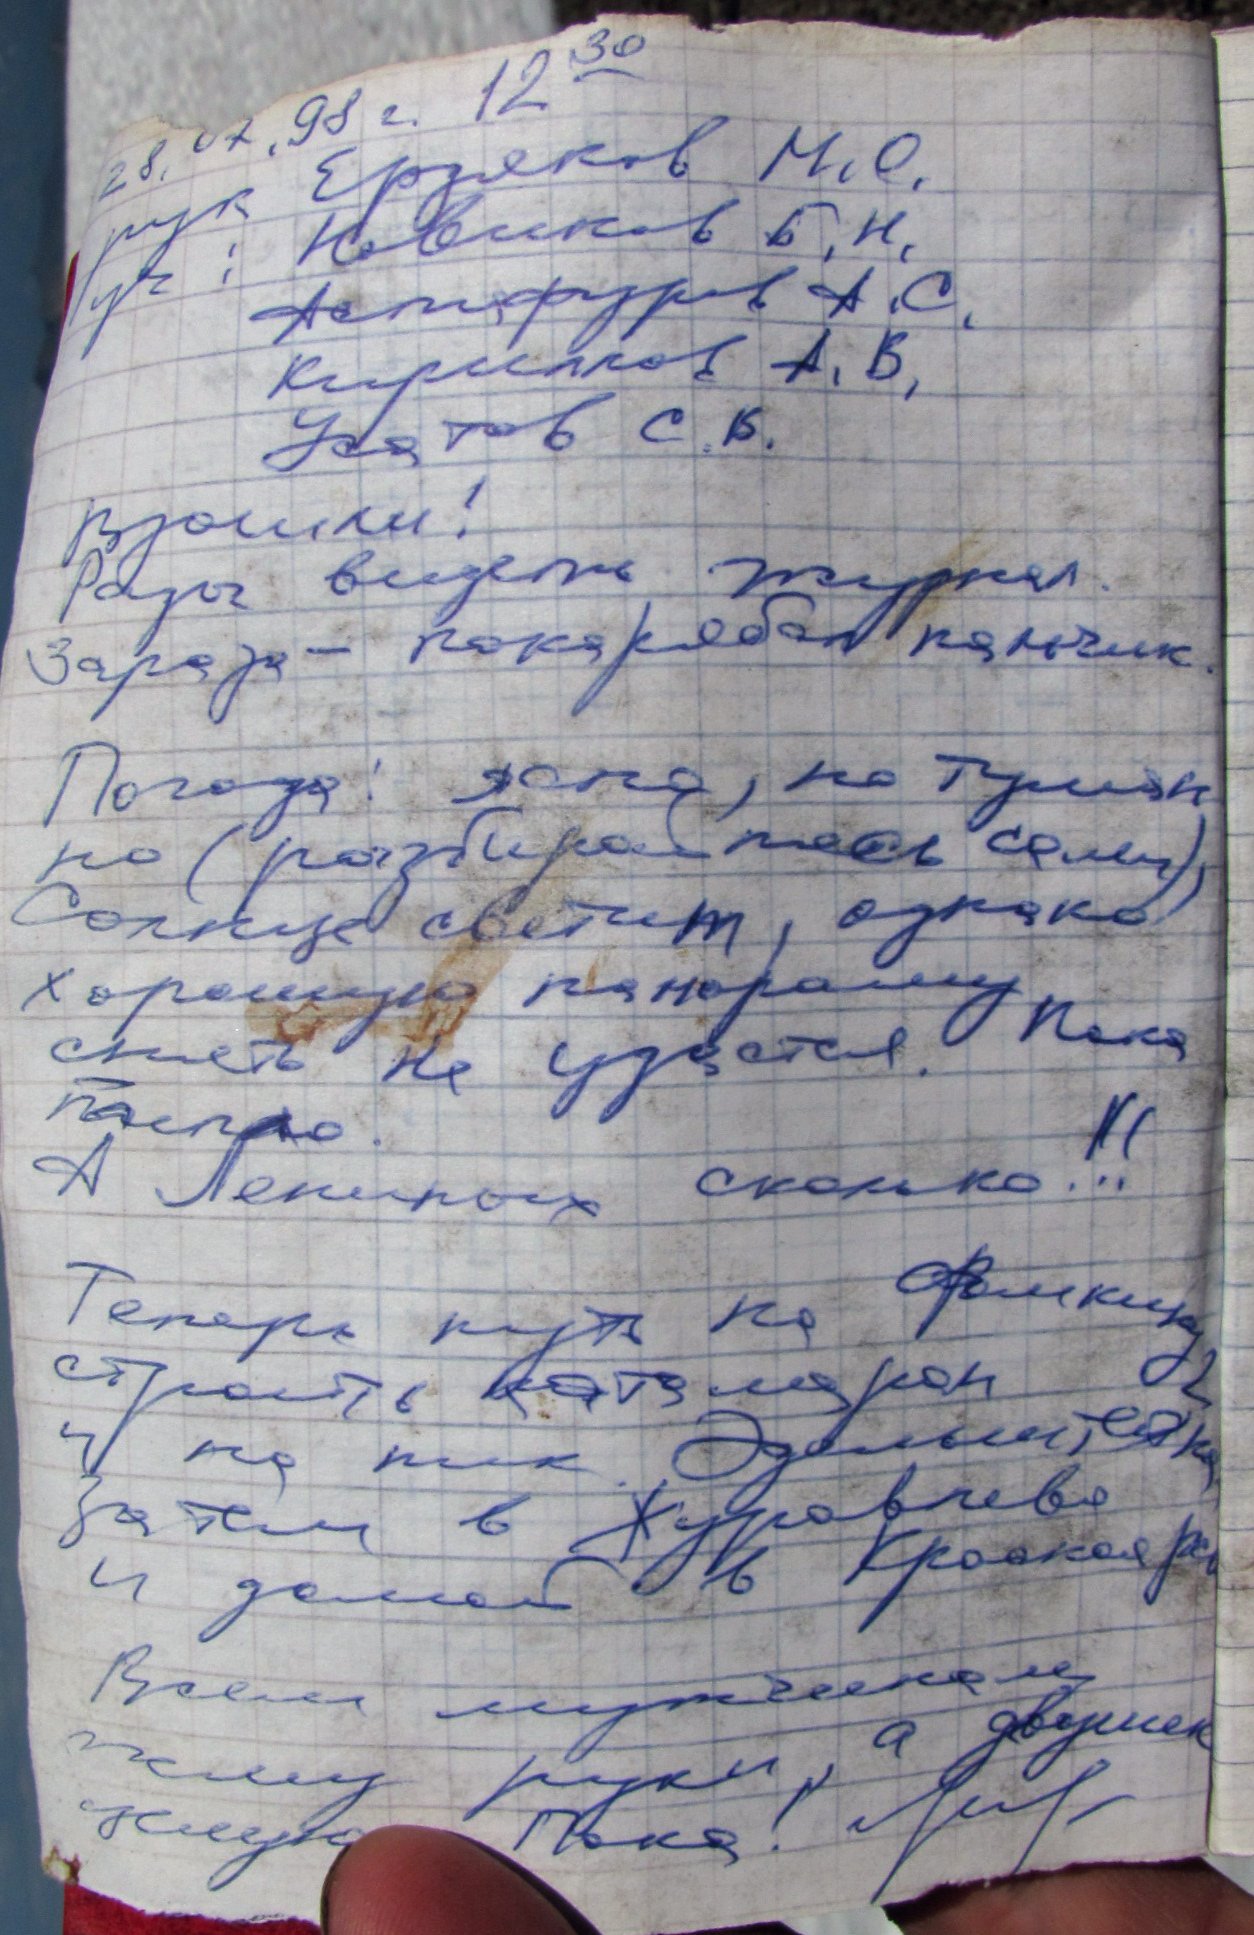 28.07.98 г. 12 30
рук Ердяков М.О.
уч: Новиков Б.Н.
А.С.
Кириллов А.В.
Усатов С.В.
Взошли!
Рады видеть журнал.
Зараза - покарябал пальчик.
Погода: ясно, но туман
но (разбирайтесь сами),
Солнце светит, однако
хорошую панораму
снять не удастся. Пока
тепло.
А Лениных сколько!!!
Теперь путь на Фомкину
строить катамаран
и на пик Эдельштейна
Затем в Журавлево
и домой в Красноярск
Всем мужчинам
жму руки, а двушек
жмую Пока!